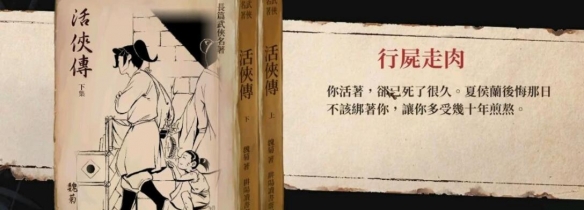 活俠傳
下集
魏菊
長篇武俠名著
活俠傳
下
魏菊 著
活俠傳
上
魏菊 著
行屍走肉
你活著，卻已死了很久。夏侯蘭後悔那日
不該綁著你，讓你多受幾十年煎熬。